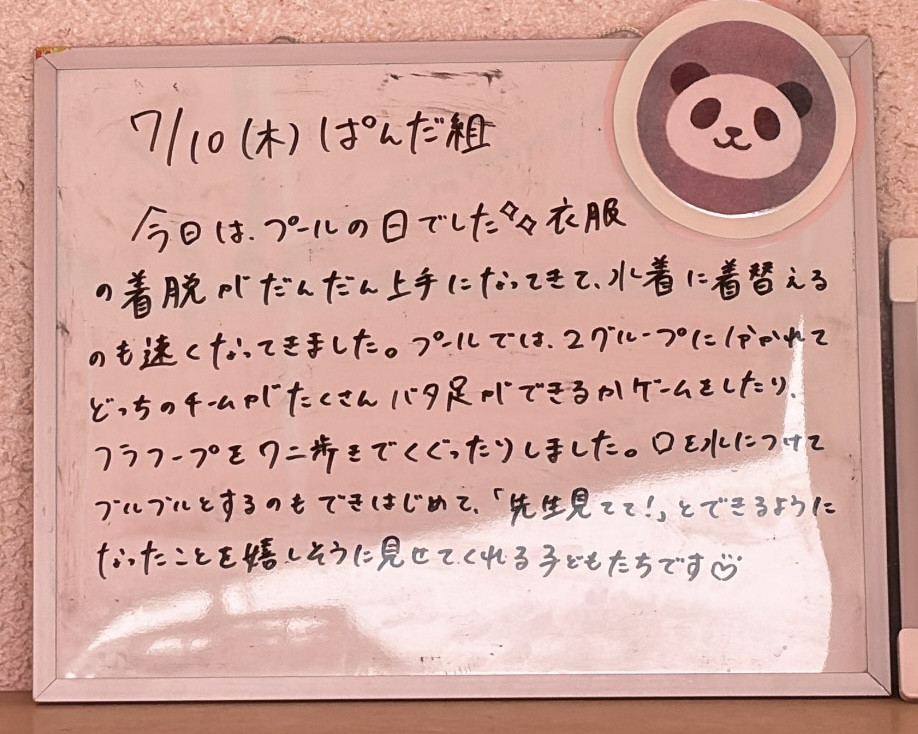 7/10(木)ぱんだ組
今日は、プールの日でした✧✧衣服
の着脱がだんだん上手になってきて、水着に着替える
のも速くなってきました。プールでは、2グループに分かれて
どっちのチームがたくさんバタ足ができるかゲームをしたり、
フラフープをワニ歩きでくぐったりしました。口を水につけて
ブルブルとするのもできはじめて、「先生見てて!」とできるように
なったことを嬉しそうに見せてくれる子どもたちです♡